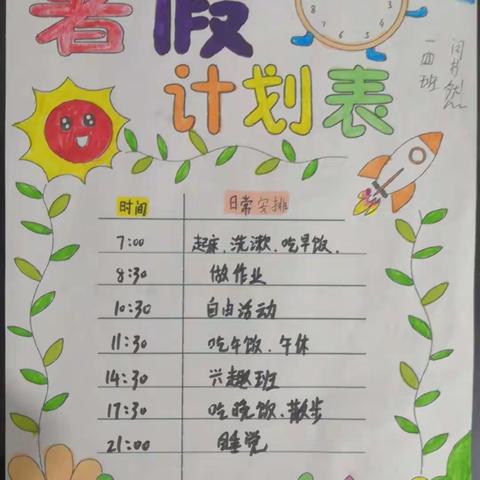 暑假
计划表
一四班
时间 日常安排
7:00 起床、洗漱、吃早饭、
8:30 做作业
10:30 自由活动
11:30 吃午饭、午休
14:30 兴趣班
17:30 吃晚饭、散步
21:00 睡觉